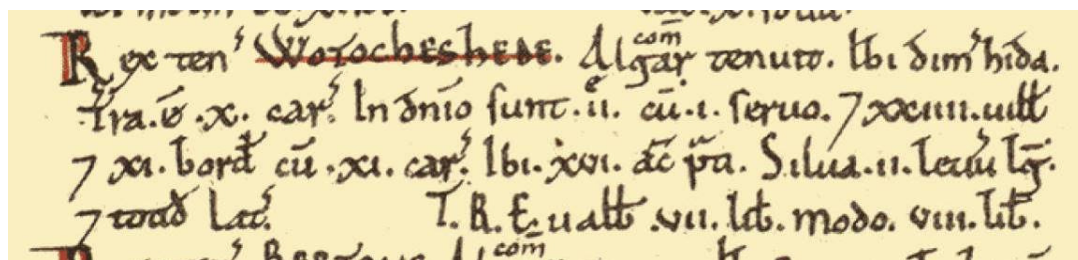 Rex ten' Worocheshede. Algar com̄ tenuit. Ibi dim' hida.
T̄ra.ē.x. car'. In dn̄io sunt.ii. cū.i. seruo. 7 xxiiii.uilł
7 xi. bord̄ cū.xi. car'. Ibi.xvi. ac̄ p̄ti. Silua.ii. leuu' lḡ.
7 tn̄td̄ lat'. T.R.E. ualb̄.vii. lib̄. modo. viii. lib̄.
com̄